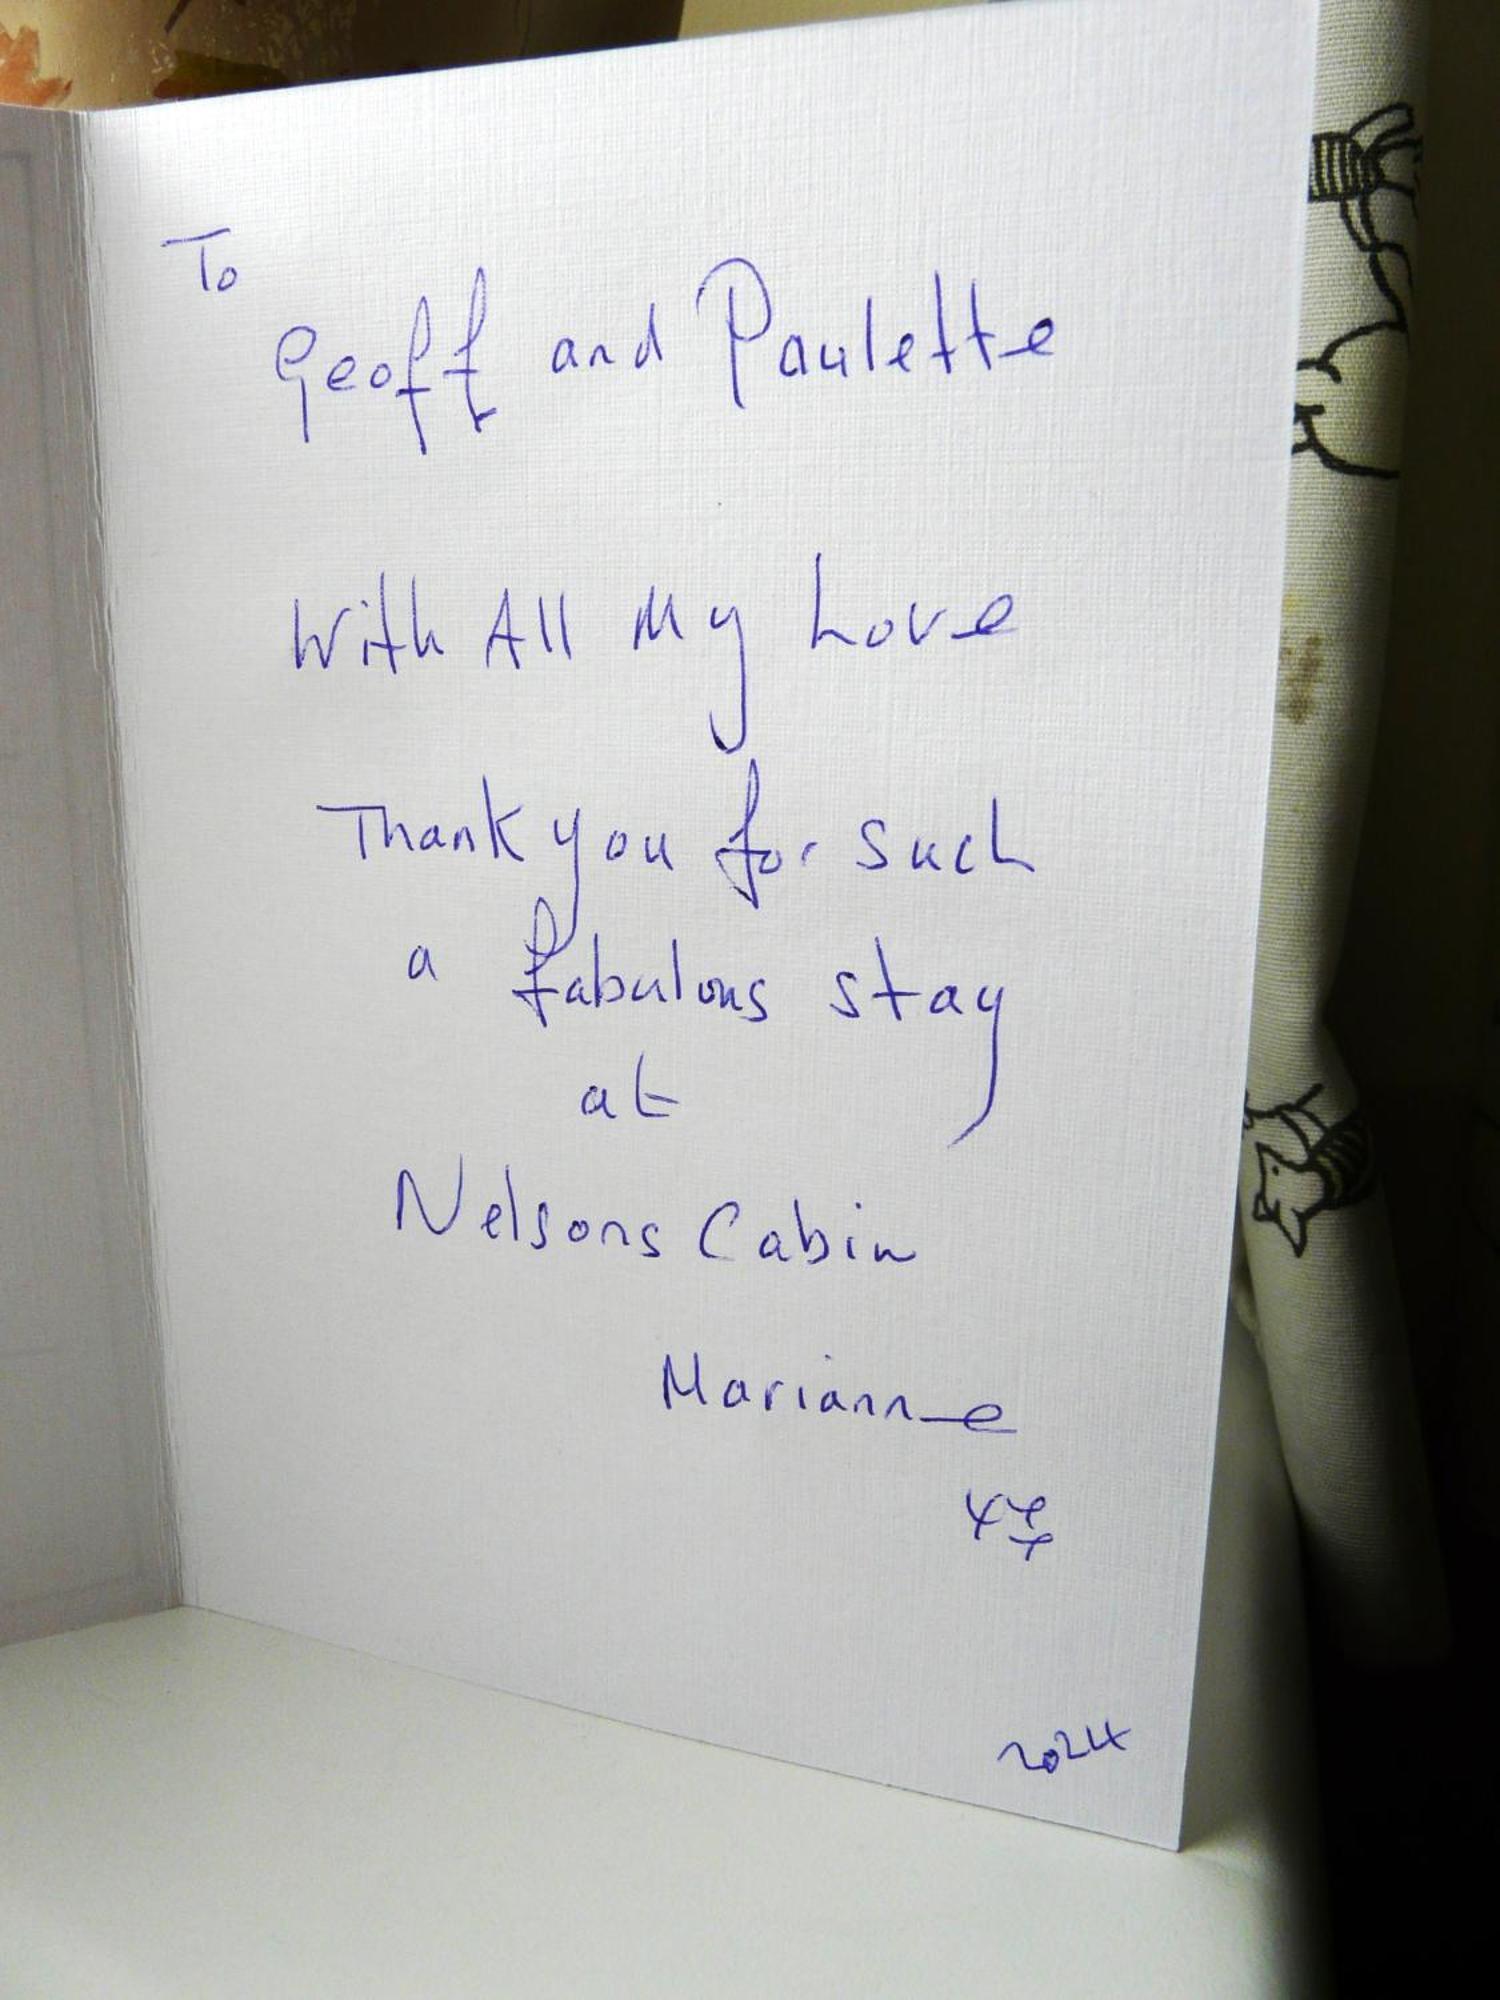 To
Geoff and Paulette
With All My Love
Thank you for such
a fabulous stay
at
Nelsons Cabin
Marianne
xxx
2024